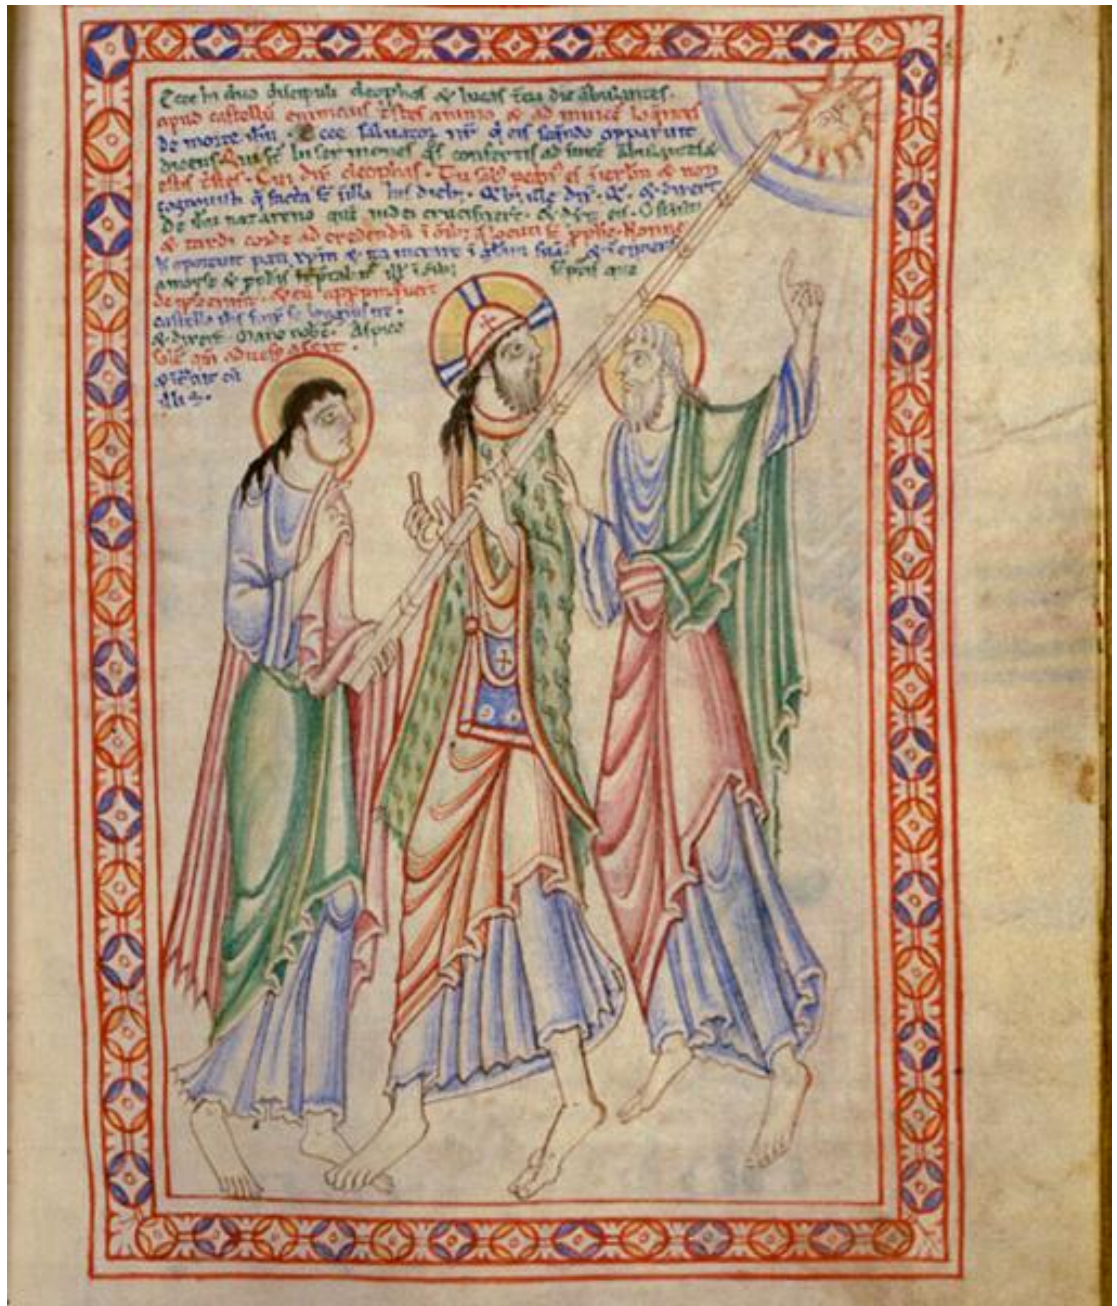 Ecce hi duo discipuli cleophas & lucas die ābulantes.
apud castellū emmaus tristes animo & ad invicē loquentes
de morte ihū. Ecce salvator nr̄ eis apparuit
dicens. Qui sē hi sermones qs̄ confertis ad invicē ābulantes &
estis tristes. Cui dix̄ cleophas. Tu sol' es in ierlm̄ & non
cognovisti q̄ facta sē in illa his dieb;. ille dix̄. & dixert̄
De ihū nazareno quē iudei crucifixer̄t. & dix̄ eis. O stulti
& tardi corde ad credendū ī ōib; q̄ locuti sē pphe. Nonne
h' oportuit pati xpm & ita intrare ī glām suā. & īcipiens
a moyse & illis ī ōib; sc̄pturis que
de ipso erant. & cū appropinquaret
castello se longius ire.
& dixert̄. Mane nobc̄. Aspice
solē
& ītravit cū
illis.